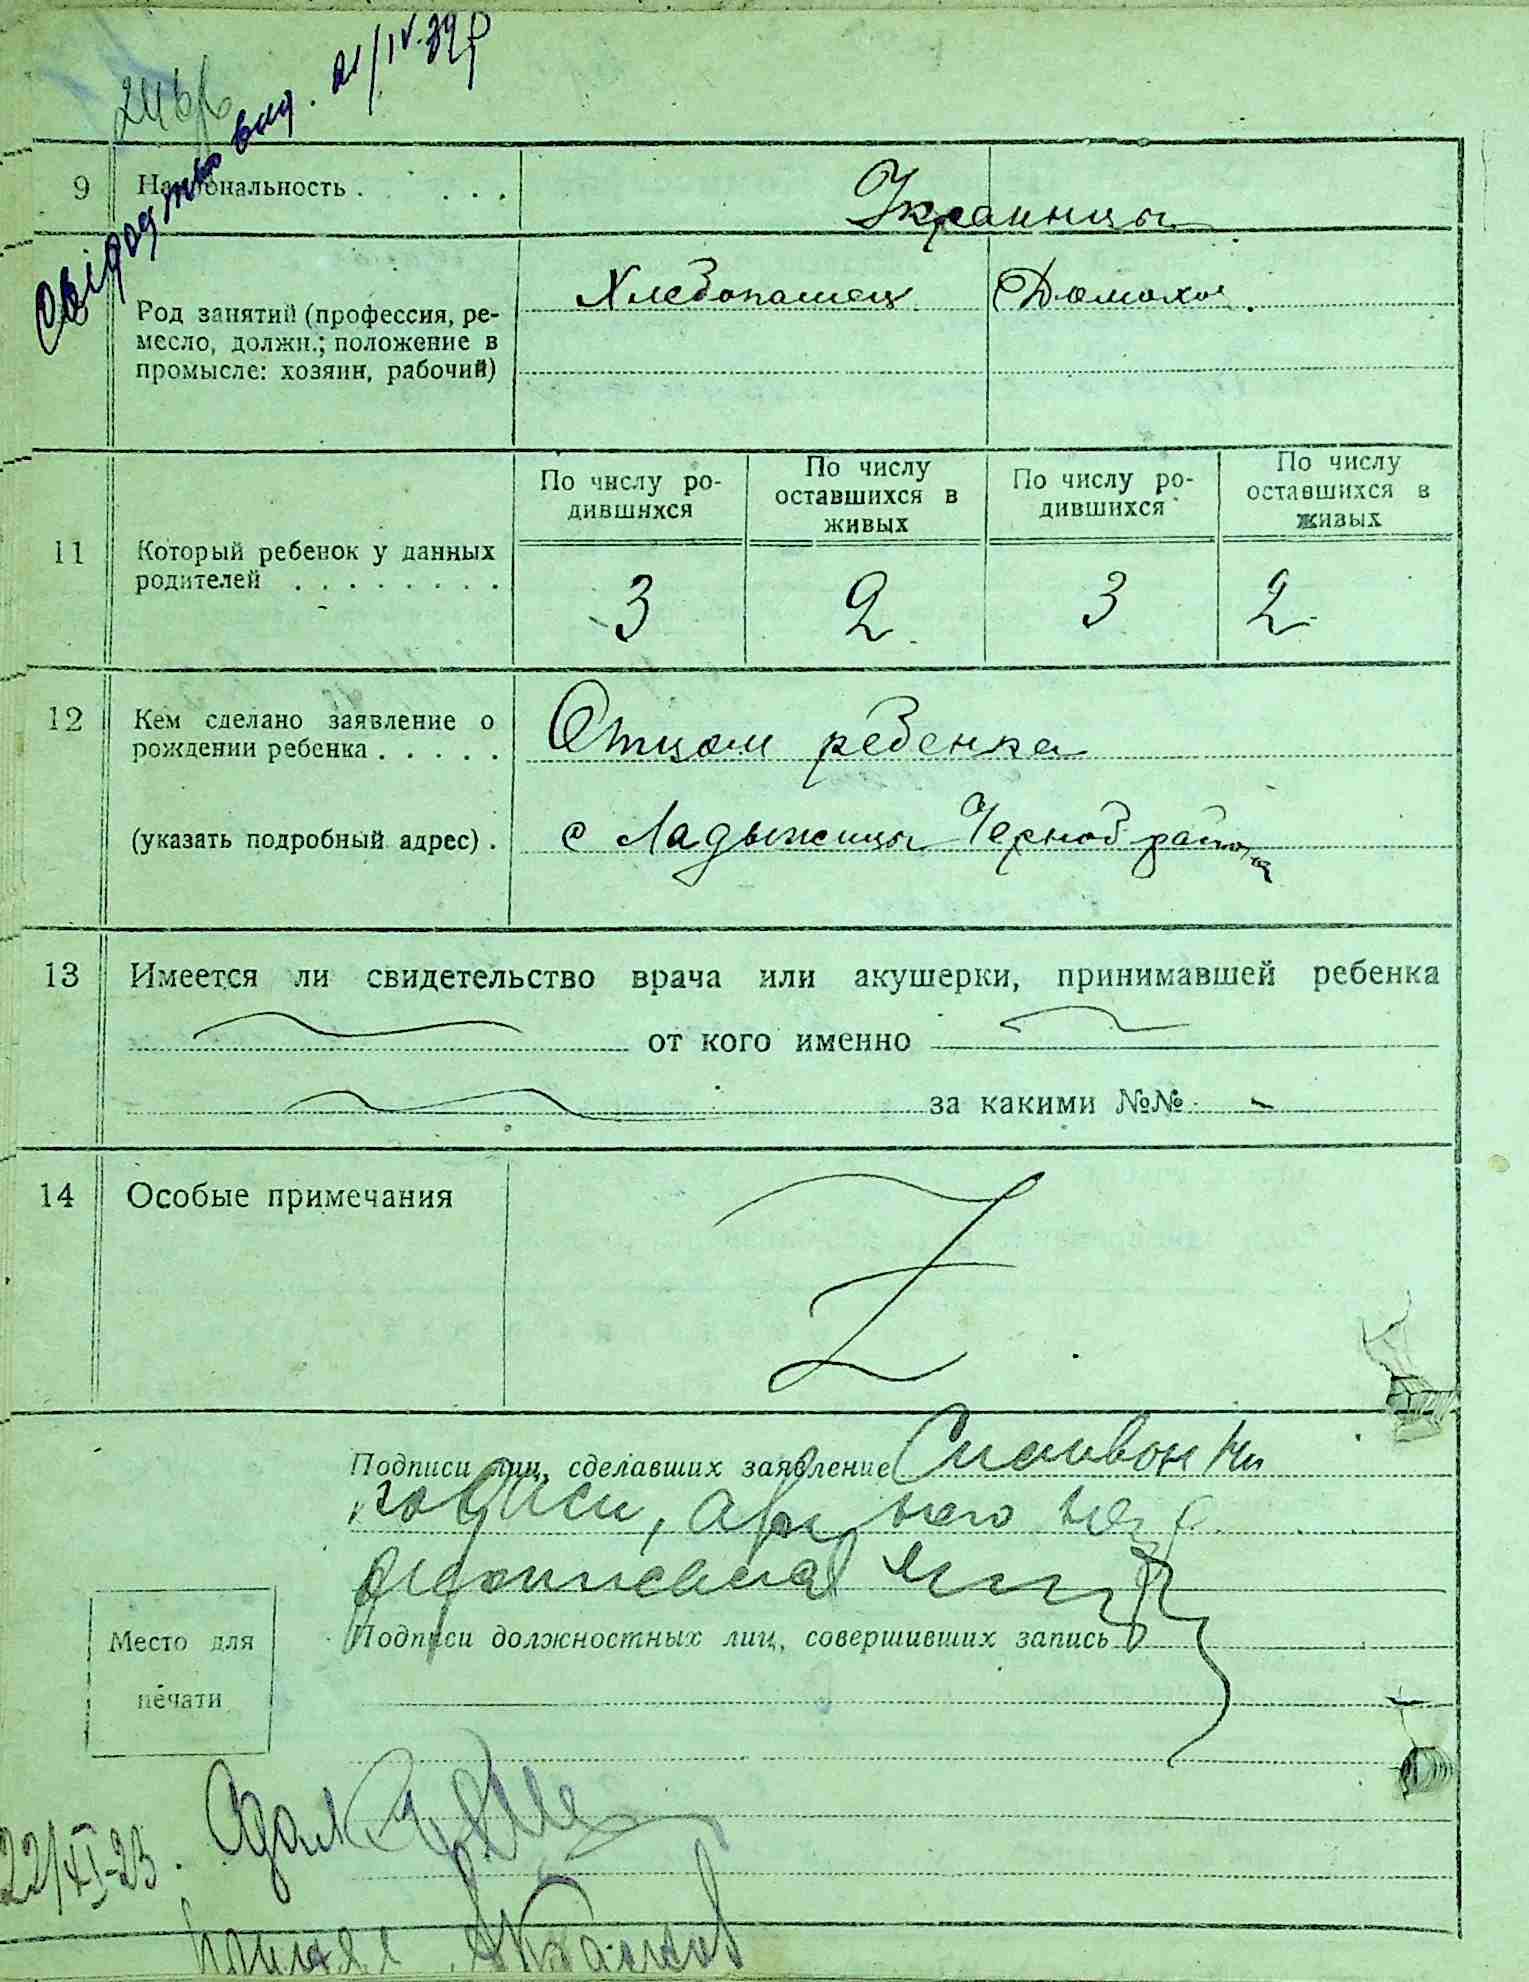 Свідоцтво вид. 21/IV-39 р
9 Национальность . . . . . Украинцы
Род занятий (профессия, ре-
месло, должн.; положение в
промысле: хозяин, рабочий)
Хлебопашец Домахоз.
11 Который ребенок у данных
родителей . . . . . . . .
По числу ро-
дившихся
По числу
оставшихся в
живых
По числу ро-
дившихся
По числу
оставшихся в
живых
3 2 3 2
12 Кем сделано заявление о
рождении ребенка . . . . .
Отцом ребенка
(указать подробный адрес) .
с Ладыжицы Черноб района
13 Имеется ли свидетельство врача или акушерки, принимавшей ребенка
от кого именно
за какими №№ -
14 Особые примечания
Z
Подписи лиц, сделавших заявление
Подписи должностных лиц, совершивших запись
Место для
печати
22/XI-23. Сдал
Принял